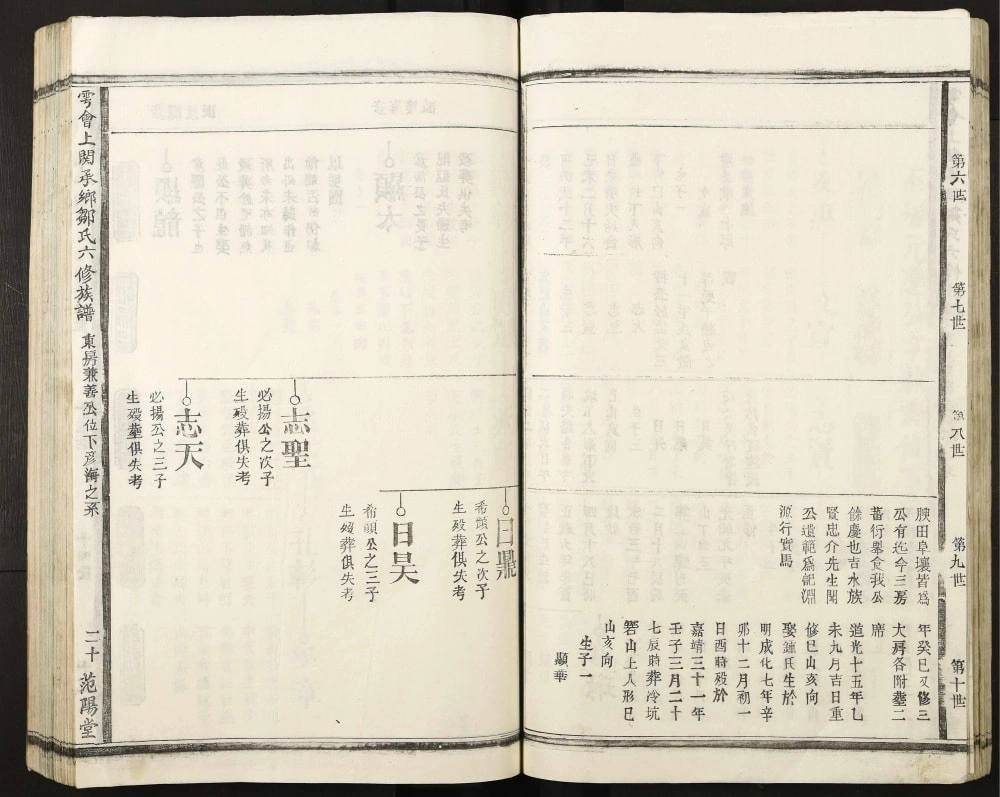 第六世
第七世
八世
第九世
第十世
腴田阜壤皆爲
公有迄今三房
蕃衍畧僉我公
餘慶也吉水族
賢忠介先生開
公遺範爲記淵
源行實焉
年癸巳又修三
大房各附塋二
席
道光十五年乙
未九月吉日重
修巳山亥向
娶鍾氏生於
明成化七年辛
卯十二月初一
日酉時殁於
嘉靖三十一年
壬子三月二十
七辰時葬冷坑
窖山上人形巳
山亥向
生子一
顯華
日鼎
希頭公之次子
生殁葬俱失考
日昊
希頭公之三子
生殁葬俱失考
志聖
必揚公之次子
生殁葬俱失考
志天
必揚公之三子
生殁塟俱失考
雩會上関承鄉鄒氏六修族譜
東房兼善公位下彦海之系
二十
范陽堂